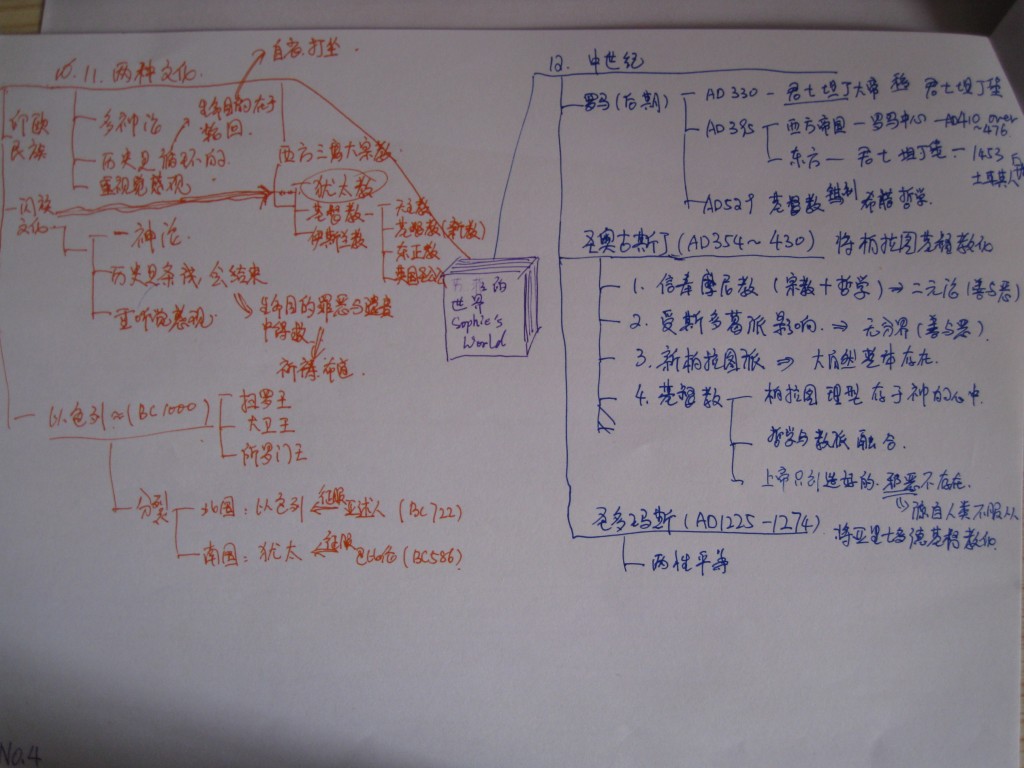 10. 11. 两种文化
自哀打坐
印欧民族
多神论
历史是循环的
重视觉感观
生命目的在于轮回
闪族文化
一神论
历史是条线,会结束
重听觉感观
生命目的罪恶与谴责中得救
祈祷
西方三宗教
犹太教
基督教
伊斯兰教
天主教
基督教(新教)
东正教
以色列(BC1000)
扫罗王
大卫王
所罗门王
分裂
北国:以色列 征服 亚述人(BC722)
南国:犹太 征服 (BC586)
世界
Sophie's
World
12. 中世纪
罗马(后期)
AD330 - 君士坦丁大帝 君士坦丁堡
AD395
西方帝国 - 罗马中心 - AD410 over
~476
东方 - 君士坦丁堡 - 1453
土耳其人
AD529 基督教 希腊哲学
圣奥古斯丁(AD354~430) 将柏拉图基督教化
1. 信奉摩尼教(宗教+哲学)⇒二元论(善与恶)
2. 受斯多葛派影响 ⇒ 无分界(善与恶)
3. 新柏拉图派 ⇒ 大自然整体存在
4. 基督教
柏拉图理型存于神的心中
哲学与教派融合
上帝只引造好的,邪恶不存在
源自人类不服从
圣多玛斯(AD1225-1274) 将亚里士多德基督教化
两性平等
No.4